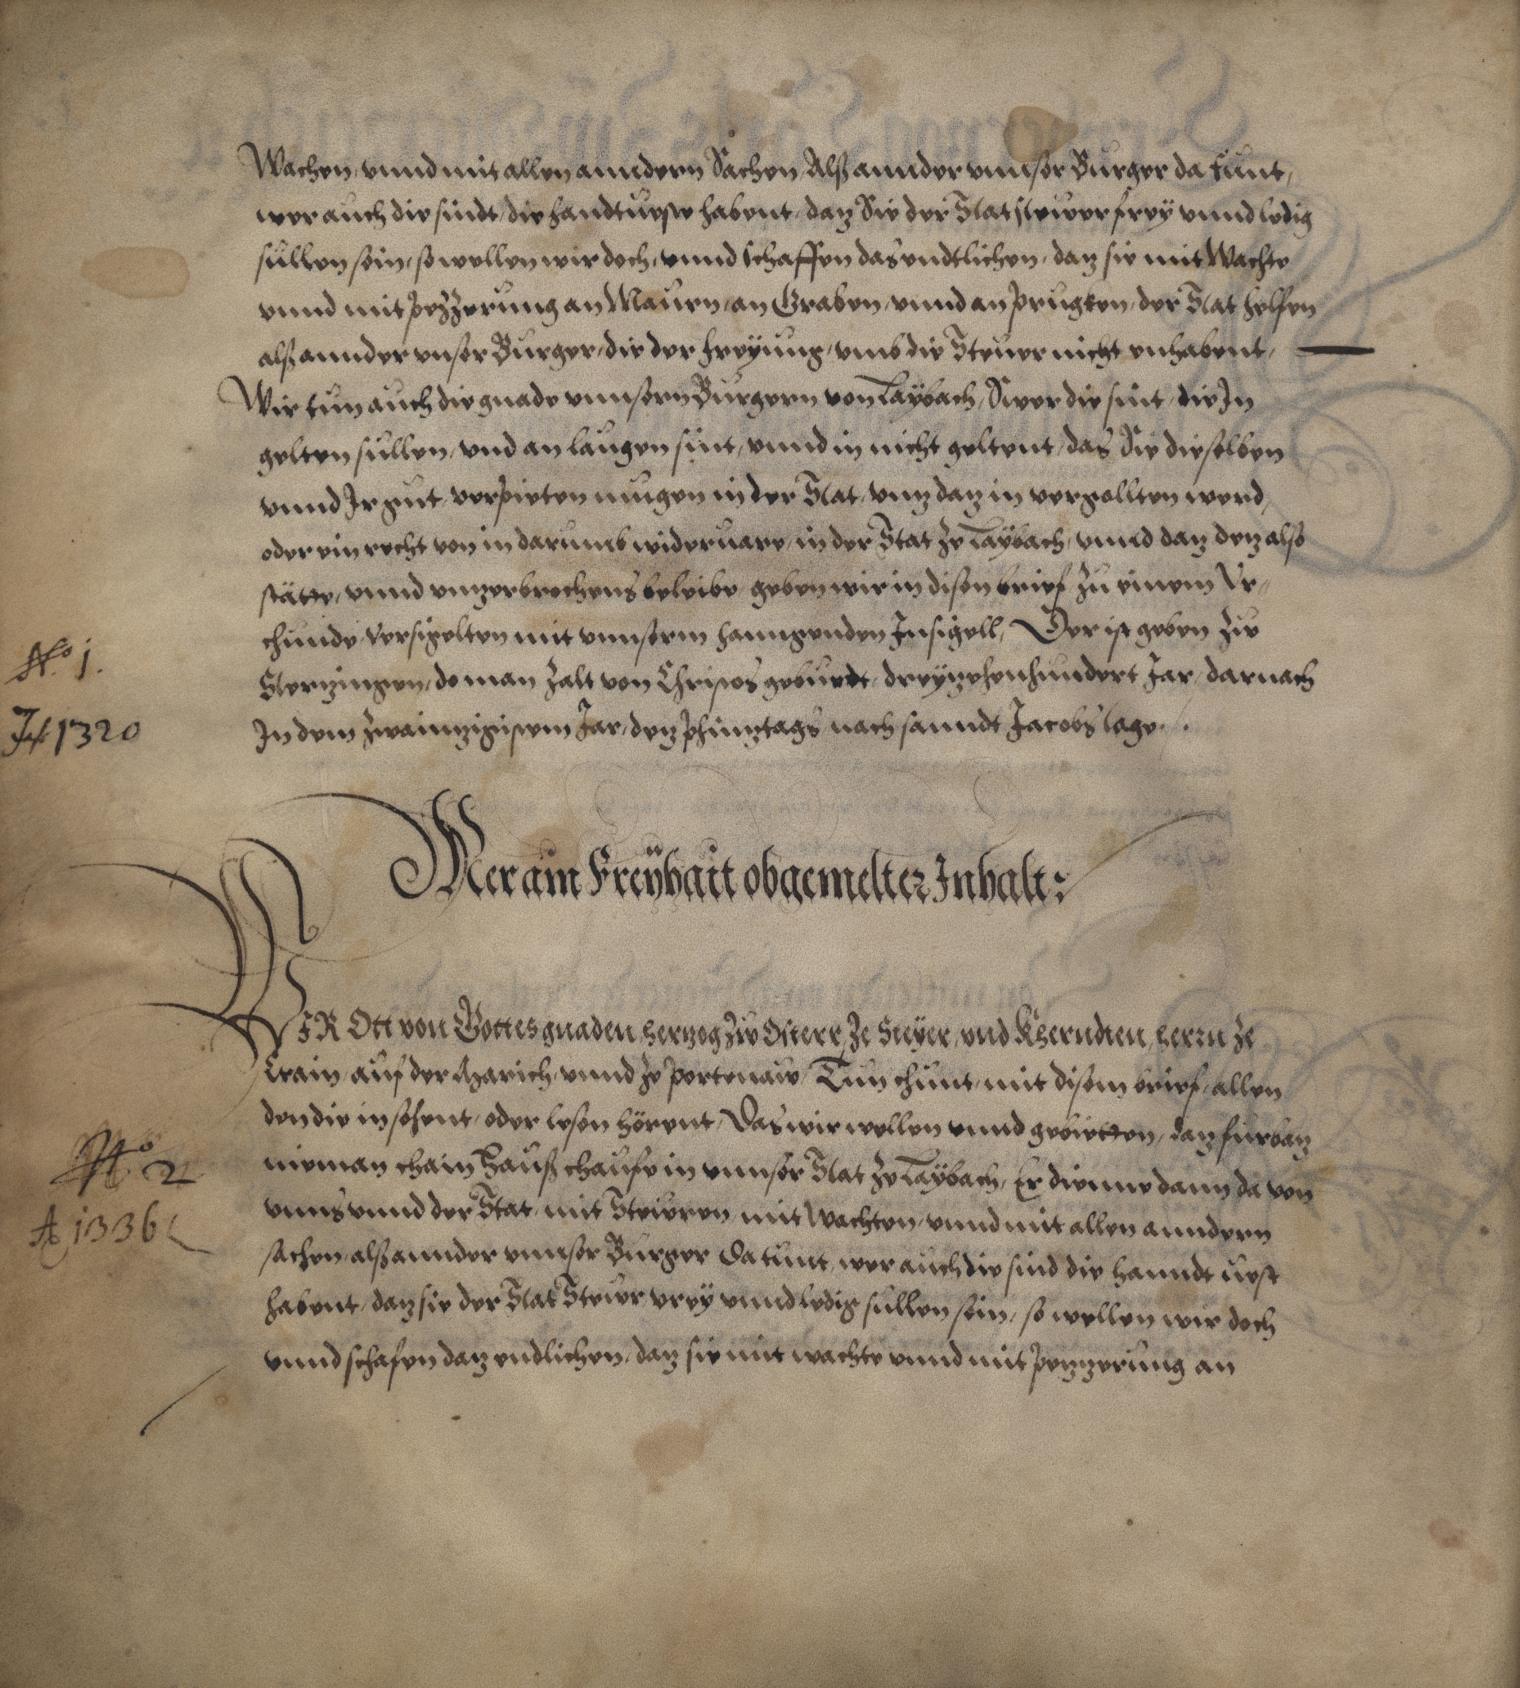 Wachen, vnnd mit allen anndern Sachen, Alß annder vnnser Burger da tunt,
wer auch die sindt, die handtueste habent, daz Sie der Stat steuer frey vnnd ledig
sullen sein, so wellen wir doch, vnnd schaffen das endtlichen, daz sie mit Wachte
vnnd mit pezzerung an Mauern, an Graben, vnnd an prugken, der Stat helfen
alß annder vnser Burger, die der freyung, vmb die Steuer nicht enhabent,
Wir tun auch die gnade vnnsern Burgern von Laybach, Swer die sint, die In
gelten sullen, vnd an laugen sint, vnnd in nicht geltent, das Sie dieselben
vnnd Ir gut verpieten mugen in der Stat, vnz daz in vergollten werd,
oder ein recht von in darumb wideruare, in der Stat ze Laybach, vnnd daz dez also
stätte, vnnd vnzerbrochens beleibe, geben wir in disen brief zu einem Vr-
chunde versigelten mit vnnserm hanngenden Insigell, Der ist geben ze
Sterzingen, do man zalt von Christes geburdt, dreyzehenhundert Jar, darnach
In dem zwainzigistem Jar, dez phinztags nach sanndt Jacobs tage.
No 1.
1320
Mer ain Freyhait obgemelter Inhalt:
WIR Ott von Gottes gnaden, herzog ze Osterr, ze Steyer, vnd Khernden, herrn ze
Crain, auf der March, vnnd ze Portenaw, Tun chunt, mit disem brief, allen
den die in sehent, oder lesen hörent, Das wir wellen vnnd gebietten, daz furbaz
nieman chain Hauß chaufe in vnnser Stat ze Laybach, Er dienne dann da von
vnns vnnd der Stat, mit Steuren, mit Wachten, vnnd mit allen anndern
sachen, alß annder vnnser Burger da tunt, wer auch die sind die hanndt uest
habent, daz sie der Stat Steuer vrey vnnd ledig sullen sein, so wellen wir doch
vnnd schafen daz endlichen, daz sie mit wachte vnnd mit pezzerung an
No 2
A 1336